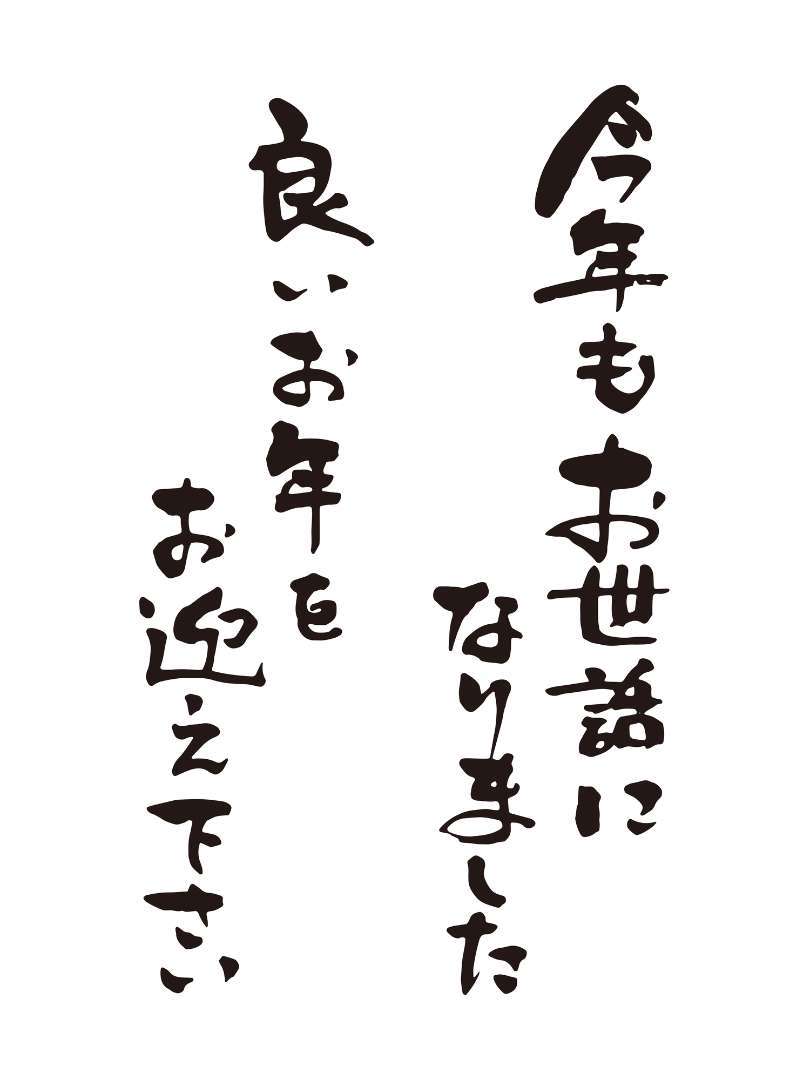 今年もお世話に
なりました
良いお年を
お迎え下さい